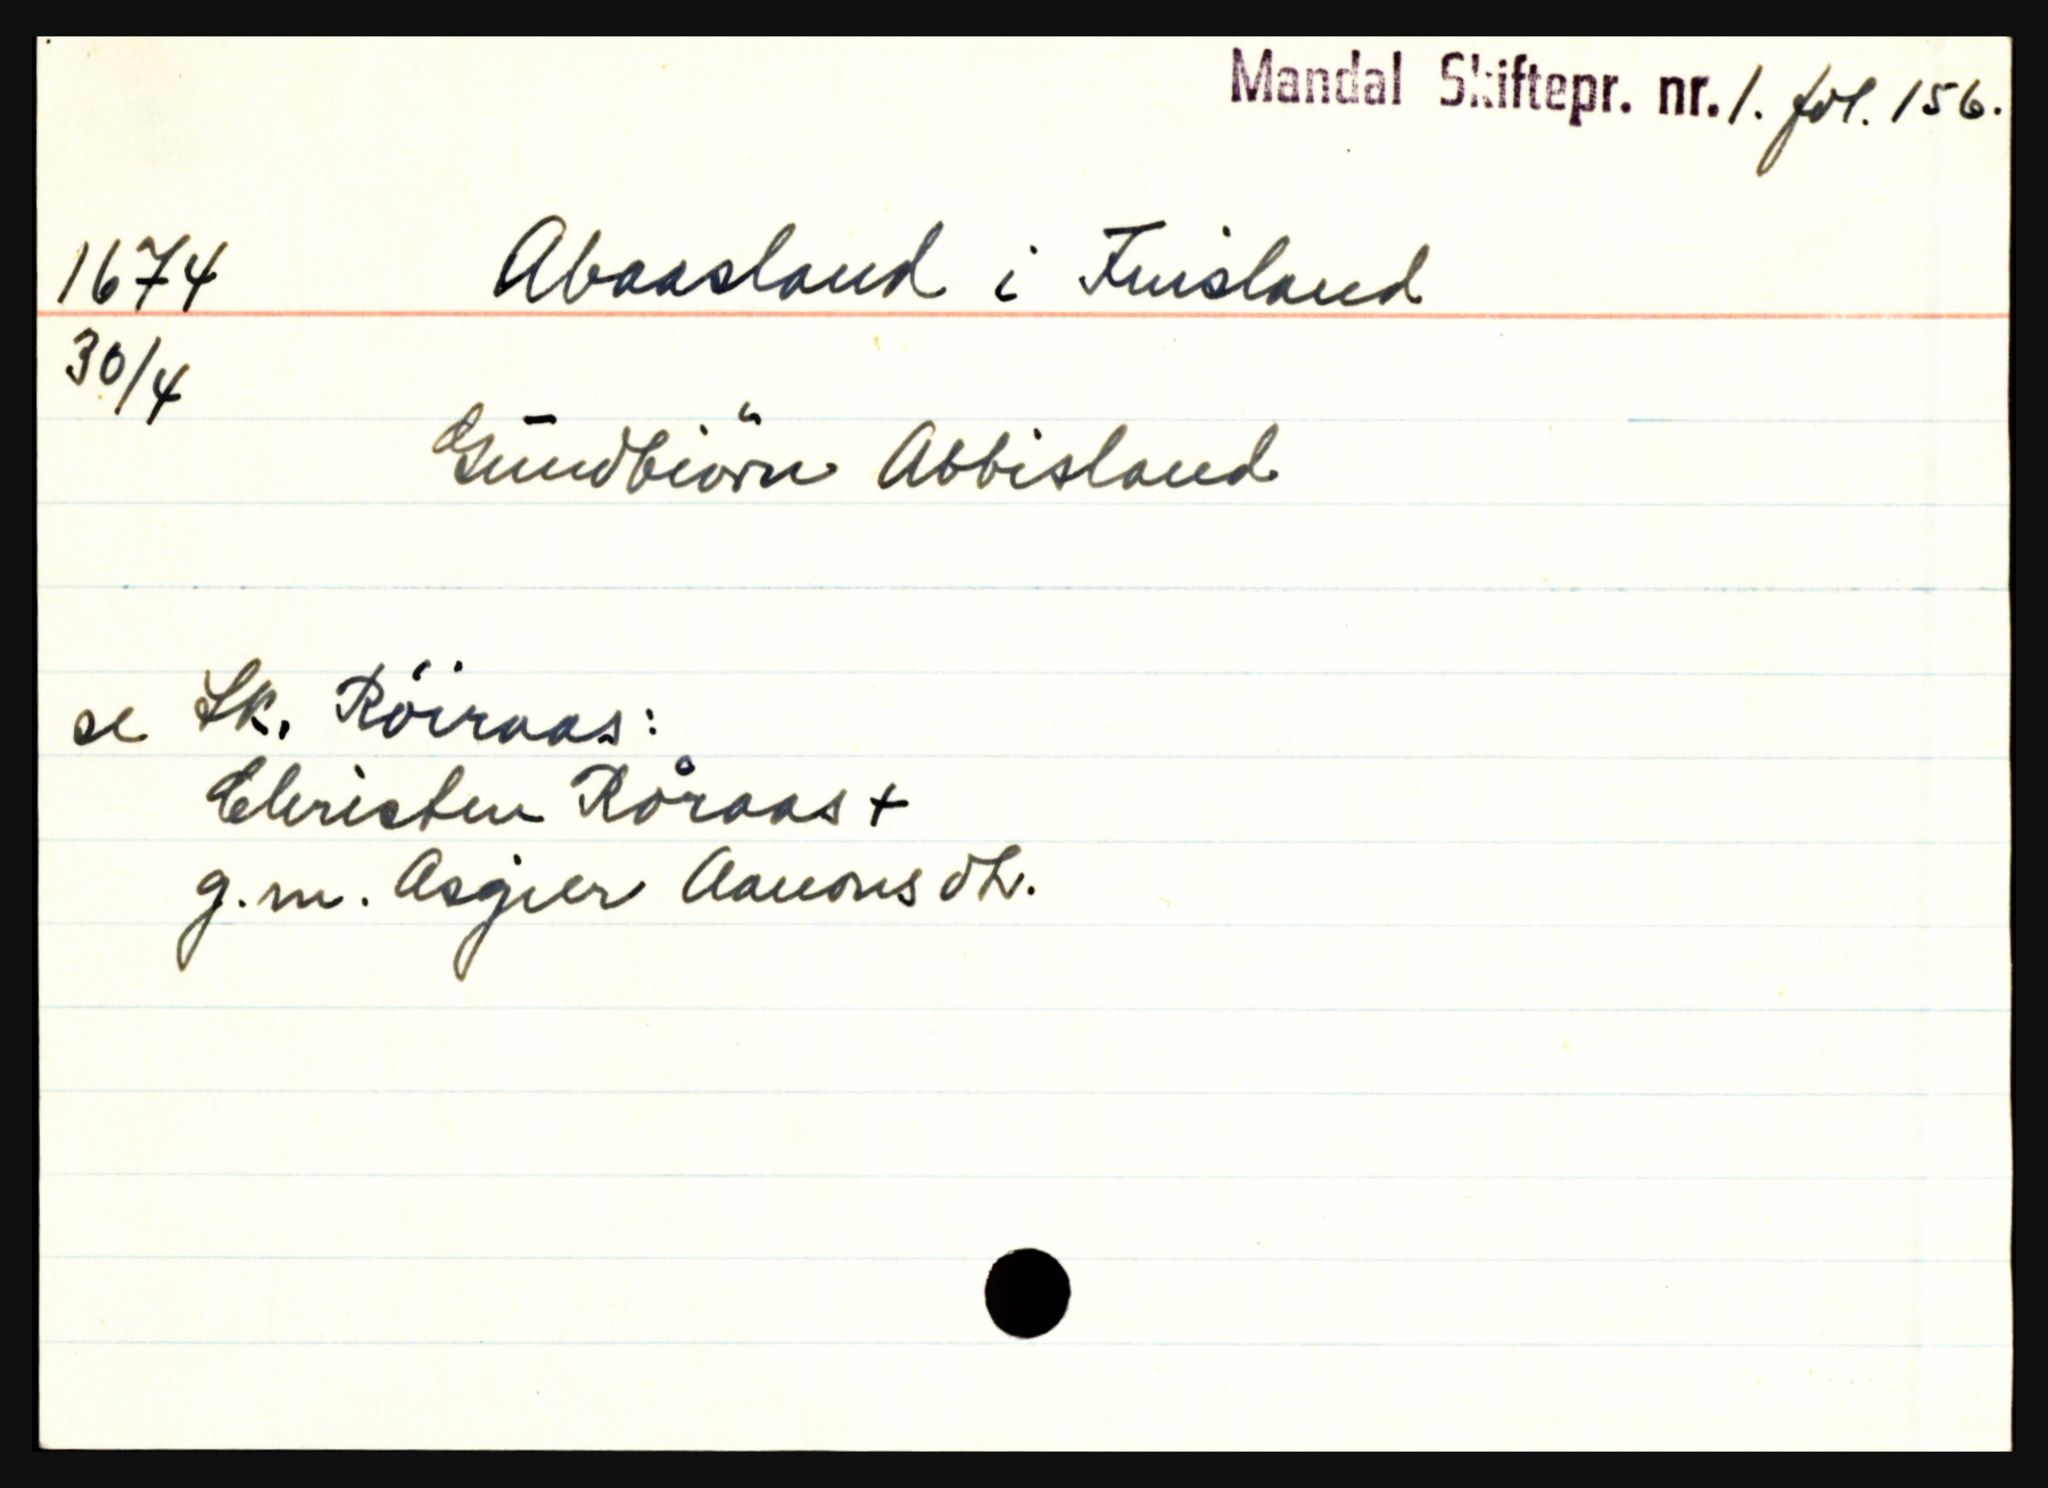 Mandal Skiftepr. nr. 1. fol. 156.
1674 Abaasland i Finisland
30/4
Gundbiörn Abbisland
se Sk. Röiraas:
Christen Råraas +
g.m. Asgier Aanons dtr.